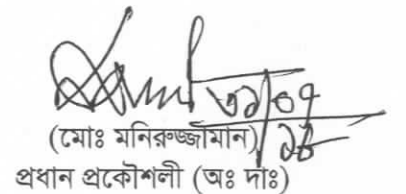 ৩১/০৭
(মোঃ মনিরুজ্জামান)
প্রধান প্রকৌশলী (অঃ দাঃ)